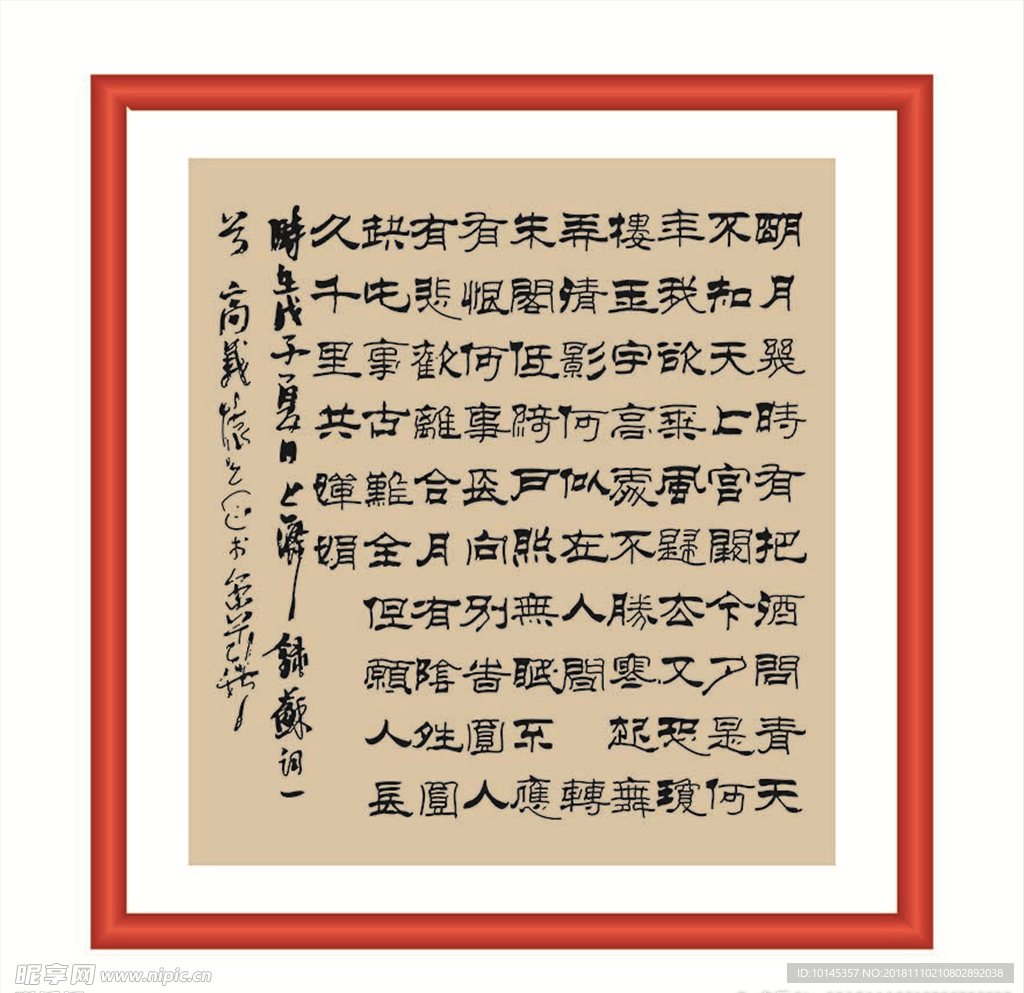 朙月幾時有把酒問青天
不知天上宮闕今夕是何
年我欲乘風歸去又恐瓊
樓玉宇高處不勝寒起舞
弄清影何似在人間 轉
朱閣低綺戶照無眠不應
有恨何事長向別旹圓人
有悲歡離合月有陰晴圓
缺此事古難全但願人長
久千里共嬋娟
時在戊子夏日上海錄蘇詞一
首 高義
昵享网 www.nipic.cn
ID:10145357 NO:20181110210802892038